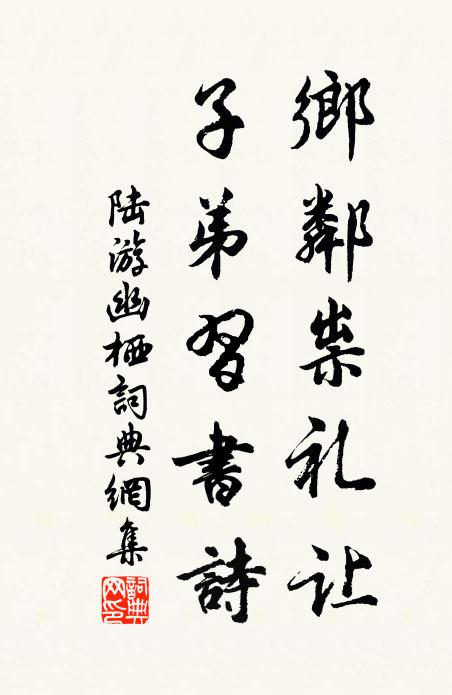 鄉鄰崇礼让
子弟習書詩
陆游幽栖詞典網集
詞典网印